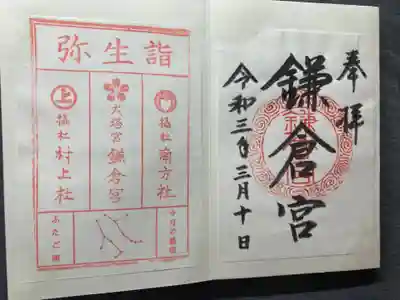 奉拝
鎌倉宮
令和三年三月十日
弥生詣
摂社 南方社
大塔宮 鎌倉宮
上
摂社 村上社
ふたご座